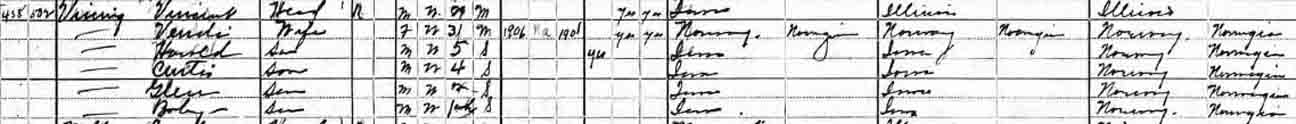 458 502 Vining Vincent Head R M W 29 M yes yes Iowa Illinois Illinois
— Vendi Wife F W 31 M 1906 Na 1908 yes yes Norway Norwegian Norway Norwegian Norway Norwegian
— Harold Son M W 5 S yes Iowa Iowa Norway Norwegian
— Curtis Son M W 4 S Iowa Iowa Norway Norwegian
— Glen Son M W S Iowa Iowa Norway Norwegian
— Son M W S Iowa Iowa Norway Norwegian